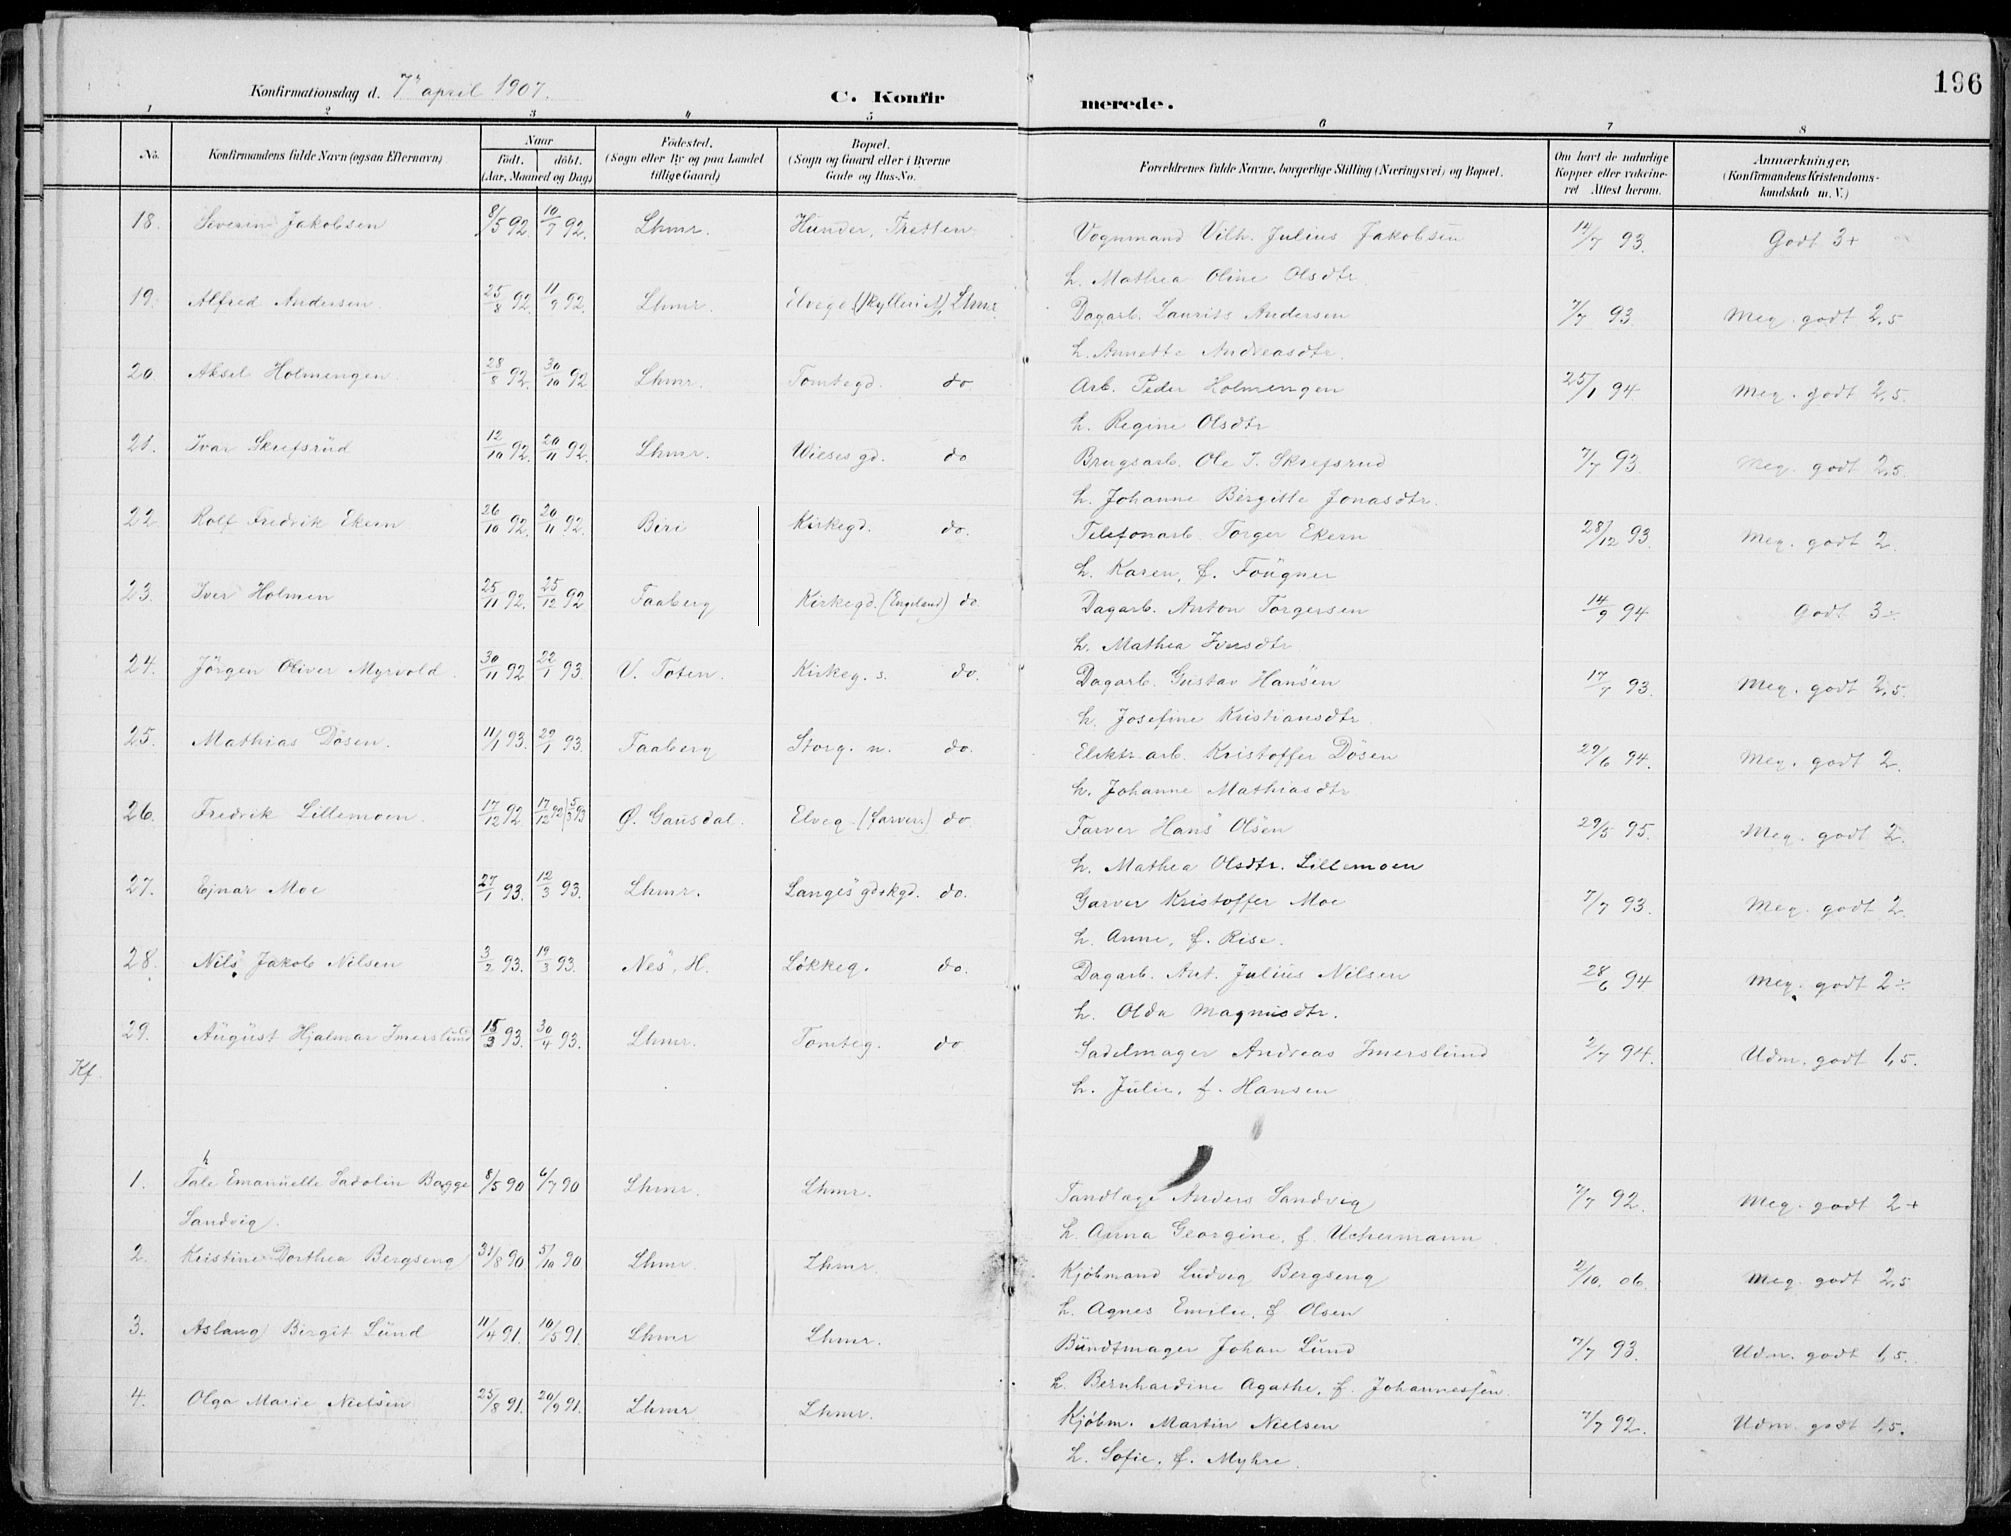 Konfirmationsdag d. 7de april 1907.
C. Konfirmerede.
196
1 2 3 4 5 6 7 8
No.
Konfirmandens fulde Navn (ogsaa Efternavn)
Naar
født. døbt.
(Aar, Maaned og Dag)
Fødested.
(Sogn eller By og paa Landet
tillige Gaard)
Bopæl.
(Sogn og Gaard eller i Byerne
Gade og Hus-No.
Forældrenes fulde Navne, borgerlige Stilling (Næringsvei) og Bopæl.
Om havt de naturlige
Kopper eller vakcine-
ret Attest herom.
Anmærkninger.
(Konfirmandens Kristendoms-
kundskab m. V.)
18. Severin Jakobsen 8/5 92 10/7 92. Lhmr. Hunder, Tretten Vognmand Vilh. Julius Jakobsen 14/7 93. Godt 3+
h. Mathea Oline Olsdtr.
19. Alfred Andersen. 25/8 92 11/9 92. Lhmr. Elvegd. Lhmr. Dagarb. Laurits Andersen 7/7 93 Meg. godt 2,5
h. Annette Andreasdtr.
20. Aksel Holmengen. 28/8 92. 30/10 92 Lhmr. Tomtegd. do Arb. Peder Holmengen 25/1 94. Meg. godt 2,5.
h. Regine Olsdtr.
21. Ivar Skrefsrud 12/10 92. 20/11 92. Lhmr. Wieses gd. do Brugsarb. Ole I. Skrefsrud 7/7 93. Meg. godt 2,5.
h. Johanne Birgitte Jonasdtr.
22. Rolf Fredrik Ekern 26/10 92. 20/11 92. Biri Kirkegd. do. Telefonarb. Torger Ekern 28/12 93. Meg. godt 2.
h. Karen, f. Fougner
23. Iver Holmen 25/11 92. 25/12 92 Faaberg Kirkegd. (Engeland) do. Dagarb. Anton Torgersen 14/9 94 Godt 3÷
h. Mathea Iversdtr.
24. Jörgen Oliver Myrvold. 30/11 92 22/1 93. V. Toten. Kirkeg. s. do. Dagarb. Gustav Hansen 17/7 93. Meg. godt 2,5.
h. Josefine Kristiansdtr.
25. Mathias Dösen. 11/1 93. 29/1 93. Faaberg Storg. n. do. Elektr. arb. Kristoffer Dösen 29/6 94. Meg. godt 2.
h. Johanne Mathiasdtr
26. Fredrik Lillemoen. 17/12 92 17/12 92 | 5/3 93 Ø. Gausdal. Elveg. (farver.) do. Farver Hans Olsen 29/5 95. Meg. godt 2.
h. Mathea Olsdtr. Lillemoen
27. Ejnar Moe 27/1 93. 12/3 93. Lhmr. Langes gd. kgd. do. Garver Kristoffer Moe 7/7 93. Meg. godt 2.
h. Anne, f. Rise.
28. Nils Jakob Nilsen 3/2 93. 19/3 93. Nes, H. Løkkeg. do. Dagarb. Ant. Julius Nilsen 28/6 94 Meg. godt 2÷
h. Olda Magnusdtr.
29. August Hjalmar Imerslund 15/3 93. 30/4 93. Lhmr. Tomteg. do Sadelmager Andreas Imerslund 2/7 94. Udm. godt 1,5.
Kf. h. Julie, f. Hansen
1. Tale Emanuelle Sadolin Bagge 8/5 90 6/7 90 Lhmr. Lhmr. Tandlæge Anders Sandvig 7/7 92. Meg. godt 2+
Sandvig. h. Anna Georgine, f. Uchermann
2. Kristine Dorthea Bergseng 31/8 90 5/10 90 Lhmr. Lhmr. Kjøbmand Ludvig Bergseng 2/10. 06. Meg. godt 2,5
h. Agnes Emilie, f. Olsen
3. Aslaug Birgit Lund 11/4 91. 10/5 91 Lhmr Lhmr. Bundtmager Johan Lund 7/7 93. Udm. godt 1,5.
h. Bernhardine Agathe, f. Johannessen.
4. Olga Marie Nielsen 25/8 91. 20/9 91. Lhmr Lhmr. Kjøbm. Martin Nielsen 7/7 92. Udm. godt 1,5.
h. Sofie, f. Myhre.